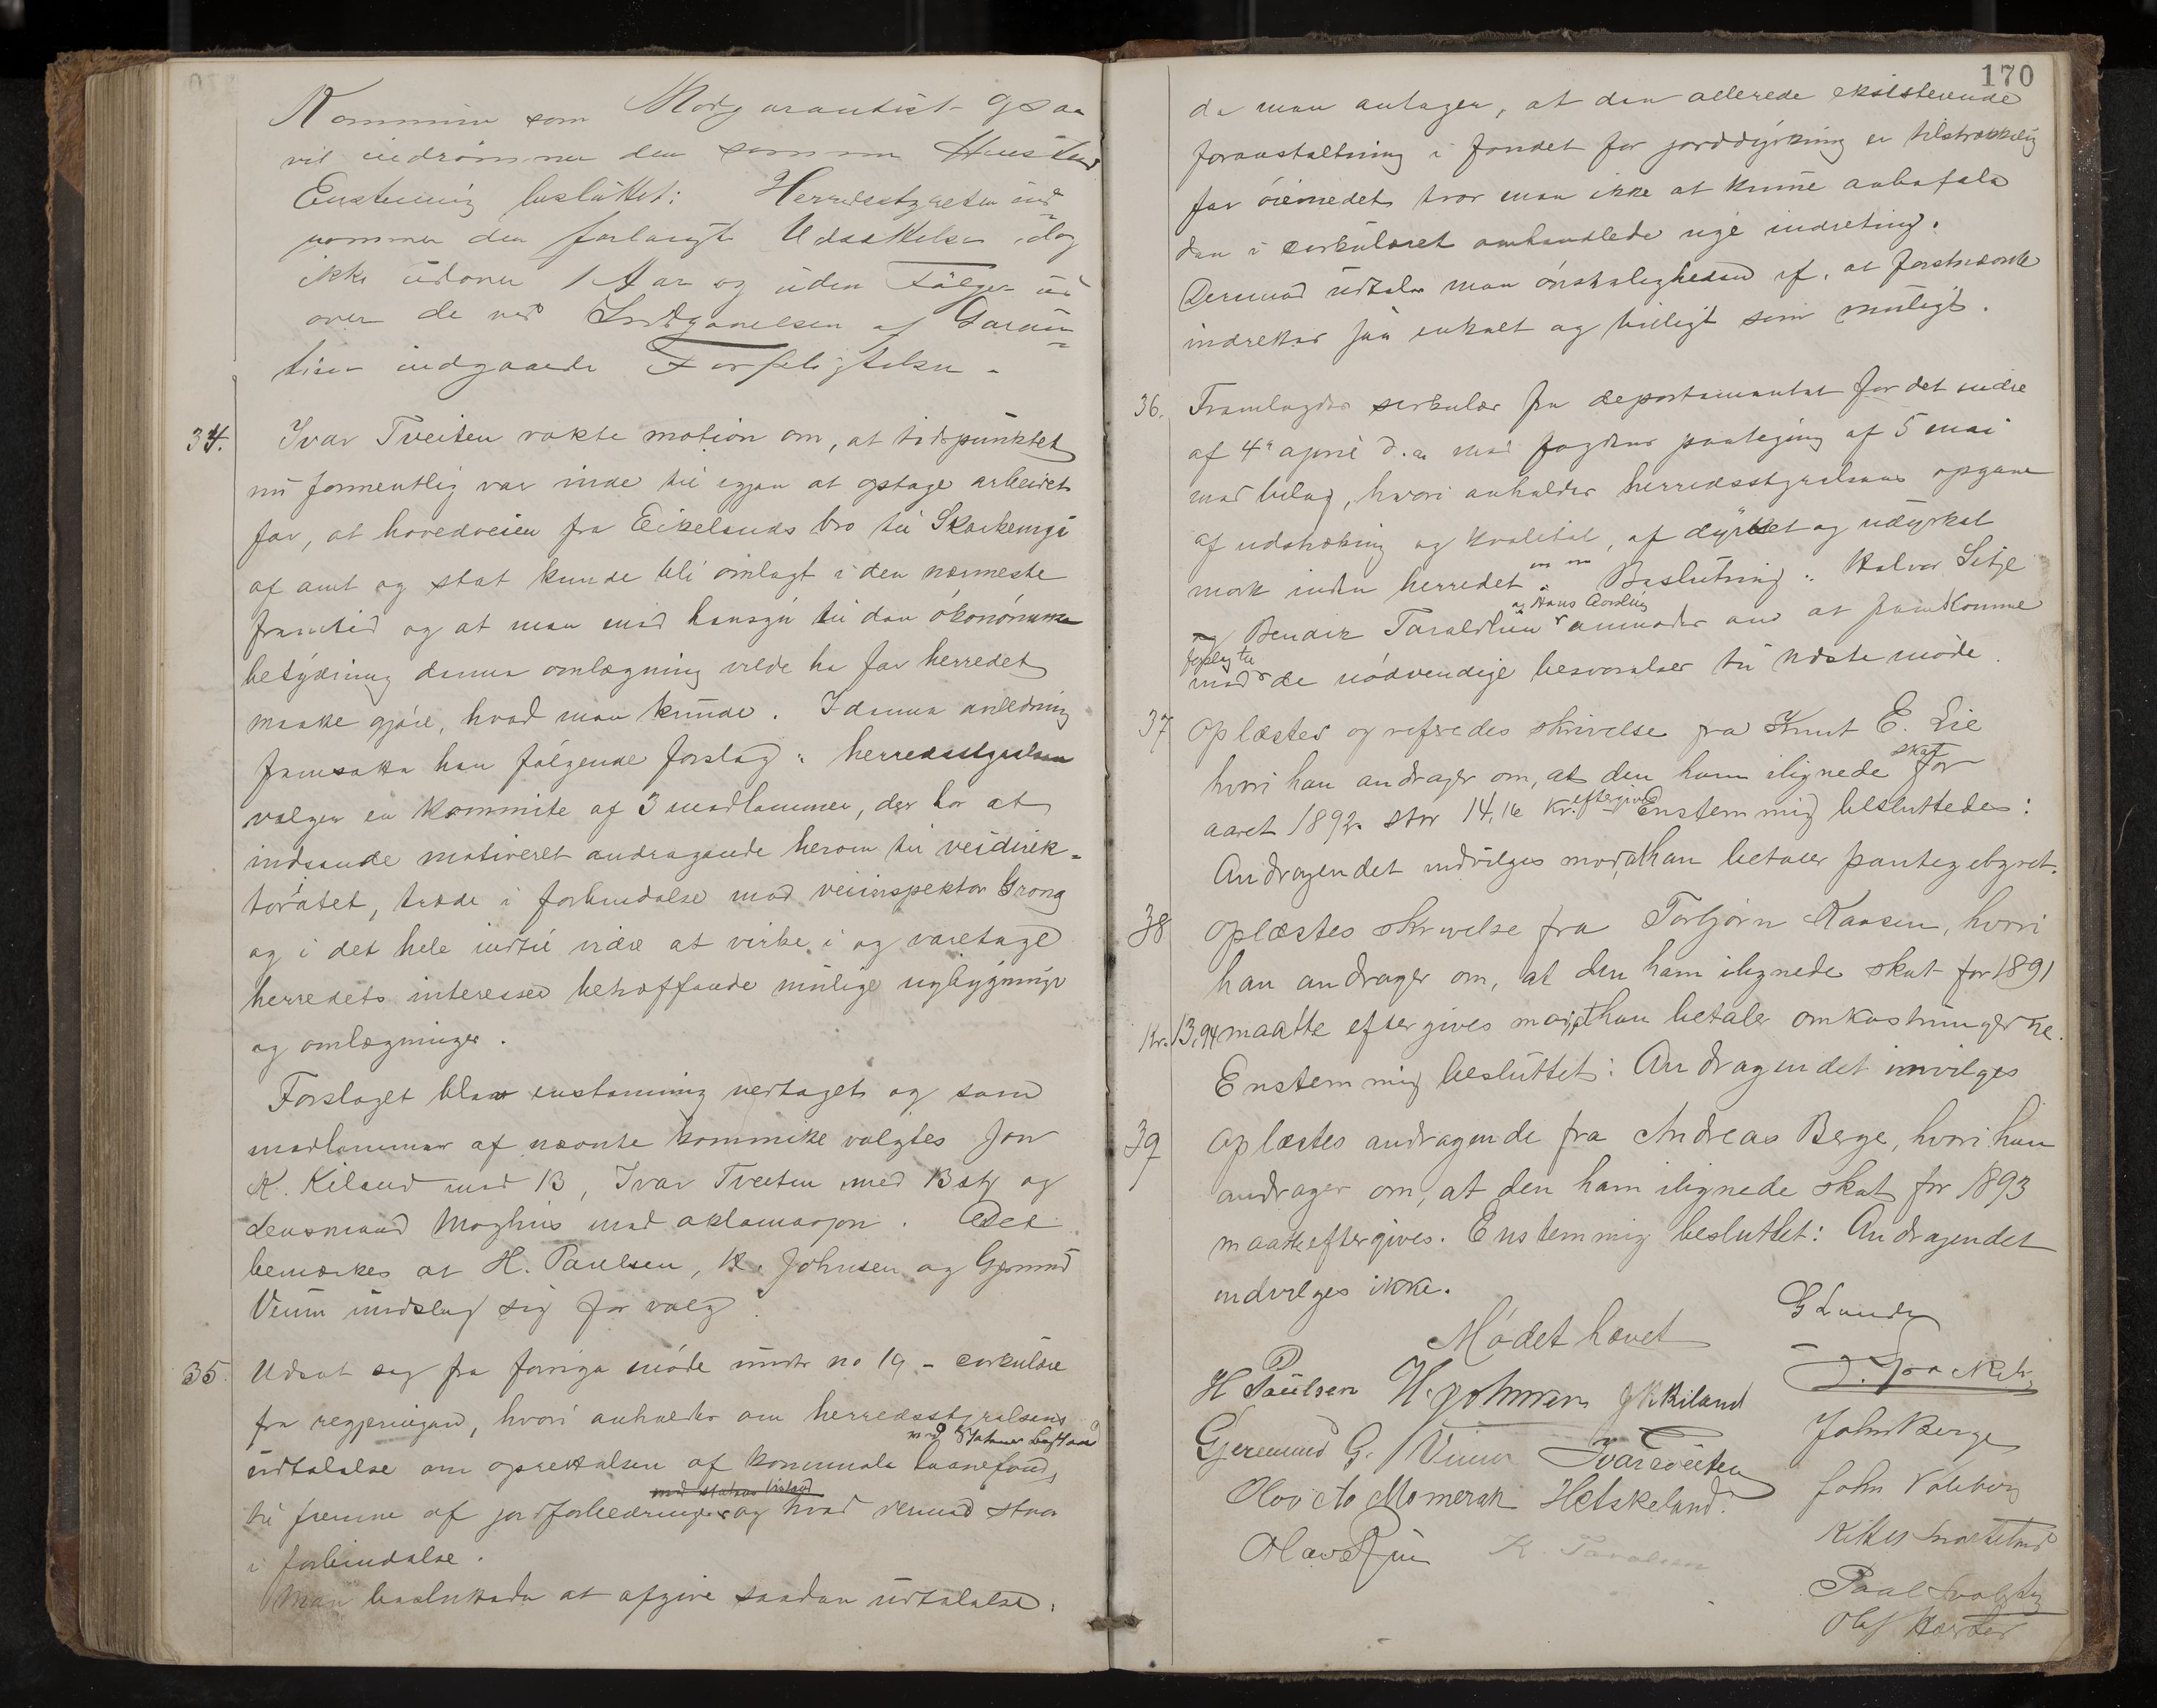 Kommune som Medgarantist ogsaa
vil indrømme den samme Henstand
Enstemmig besluttet: Herredsstyret ind-
rømmer den forlangte Udsættelse, dog
ikke udover 1 Aar og uden Følger ud
over de ved Indgaaelsen af Garan-
tien indgaaede Forpligtelser.
34. Ivar Tveiten vakte motion om, at tidspunktet
nu formentlig var inde til igjen at optage arbeidet
for, at hovedveien fra Eikelands bro til
af amt og stat kunde bli omlagt i den nærmeste
fremtid og at man med hensyn til den økonomiske
betydning denne omlægning vilde ha for herredet
maatte gjøre, hvad man kunde. I denne anledning
fremsatte han følgende forslag: herredsstyrelsen
vælger en kommite af 3 medlemmer, der har at
indsende motiveret andragende herom til veidirek-
toratet, træde i forbindelse med veiinspektør Grong
og i det hele indtil videre at virke i og varetage
herredets interesser betræffende mulige nybygninger
og omlægninger.
Forslaget blev enstemmig vedtaget og som
medlemmer af nævnte kommite valgtes Jon
K. Kiland med 13, Ivar Tveiten med 13 st og
lensmand Moghus med aklamasjon. Det
bemerkes at H. Paulsen, K. Johnsen og Gjermund
Veum undslog sig for valg.
35. Udsat sag fra forrige møde under no 19 - cirkulære
fra regjeringen, hvori anholdes om herredsstyrelsens
med Statens bistand
udtalelse om oprettelsen af kommunale laanefond,
med statens bistand
til fremme af jordforbedringer og hvad dermed staar
i forbindelse.
Man besluttede at afgive saadan udtalelse:
170
da man antager, at den allerede eksisterende
foranstaltning i fondet for jorddyrkning er tilstrækkelig
for øiemedet tror man ikke at kunne anbefale
den i cirkulæret omhandlede nye indretning.
Derimod udtaler man ønskeligheden af, at førstnævnte
indrettes saa enkelt og billigt som muligt.
36. Fremlagdes cirkulær fra departementet for det indre
af 4de april d.a. med fogdens paategning af 5 mai
med bilag, hvori anholdes herredsstyrelsens opgave
af udstrækning og kvalitet, af dyrket og udyrket
mark inden herredet m m. Beslutning: Halvor Sitje
og Hans Aarlig
og Bendix Taraldlien anmodes om at fremkomme
forslag til
med de nødvendige besvarelser til næste møde.
37 Oplæstes og refredes skrivelse fra Knut E. Lie
skat
hvori han andrager om, at den ham ilignede for
eftergives
aaret 1892 stor 14,16 Kr. Enstemmig besluttedes:
Andragendet indvilges mod, at han betaler pantegebyret.
38 Oplæstes skrivelse fra Torbjørn Kaasen, hvori
han andrager om, at den ham ilignede skat for 1891
Kr. 13,94 maatte eftergives mod, at han betaler omkostningerne.
Enstemmig besluttet: Andragendet invilges
39 Oplæstes andragende fra Andreas Berge, hvori han
andrager om, at den ham ilignede skat for 1893
maatte eftergives. Enstemmig besluttet: Andragendet
indvilges ikke.
Mødet hævet
G Lunde
H Paulsen K. Johnsen J K Kiland
John Berge
Gjeremund G. Veum Ivar Tveiten
Olav A Momerak H Eskeland
Olav
K. Taraldsen
Paal
Olaf